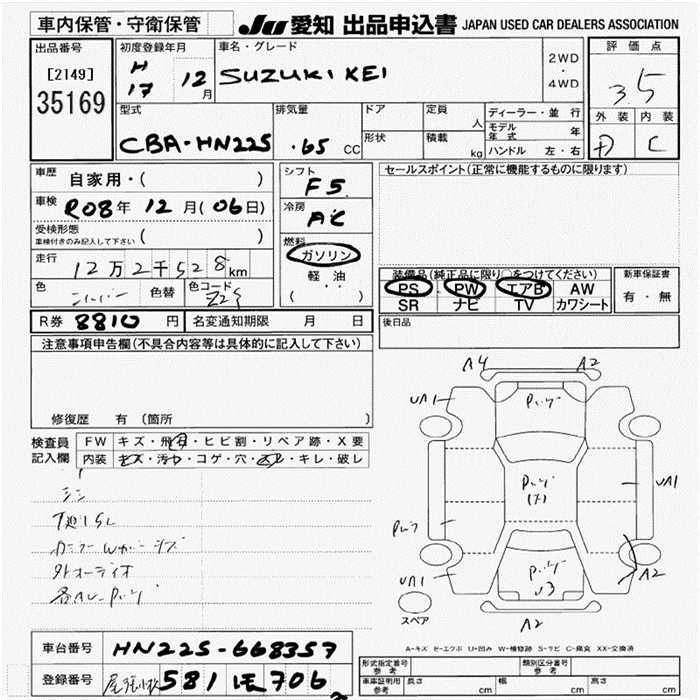 車内保管・守衛保管
JU 愛知 出品申込書 JAPAN USED CAR DEALERS ASSOCIATION
出品番号
[2149]
35169
初度登録年月
H
17 12月
車名・グレード
SUZUKI KEI
2WD
・
4WD
評価点
35
外装 内装
D C
型式
CBA-HN22S
排気量
.65 CC
ドア
形状
定員
人
積載
kg
ディーラー・並行
モデル年式 年
ハンドル 左・右
車歴 自家用・( )
車検 R08年 12月(06日)
受検形態
車検付きのみ記入して下さい ( )
走行 12万2千528km
色 シルバー 色替 色コード Z2S
シフト
F5
冷房
AC
燃料
ガソリン
軽油
( ・ )
セールスポイント(正常に機能するものに限ります)
装備品(純正品に限り○をつけてください)
PS PW エアB AW
SR ナビ TV カワシート
新車保証書
有・無
後日品
R券 8810円
名変通知期限 月 日
注意事項申告欄(不具合内容等は具体的に記入して下さい)
修復歴 有 (箇所 )
検査員
記入欄
FW キズ・飛石・ヒビ割・リペア跡・X要
内装 キズ・汚れ・コゲ・穴・スレ・キレ・破レ
外オーディオ
A4 A2
UA1
UA1
UA1
A2
A2
U3
スペア
A-キズ E-エクボ U-凹み W-補修跡 S-サビ C-腐食 XX-交換済
車台番号 HN22S-668357
登録番号 尾張小牧 581 706
形式指定番号
参考
類別区分番号
参考
車庫証明用
参考
長さ cm
幅 cm
高さ cm